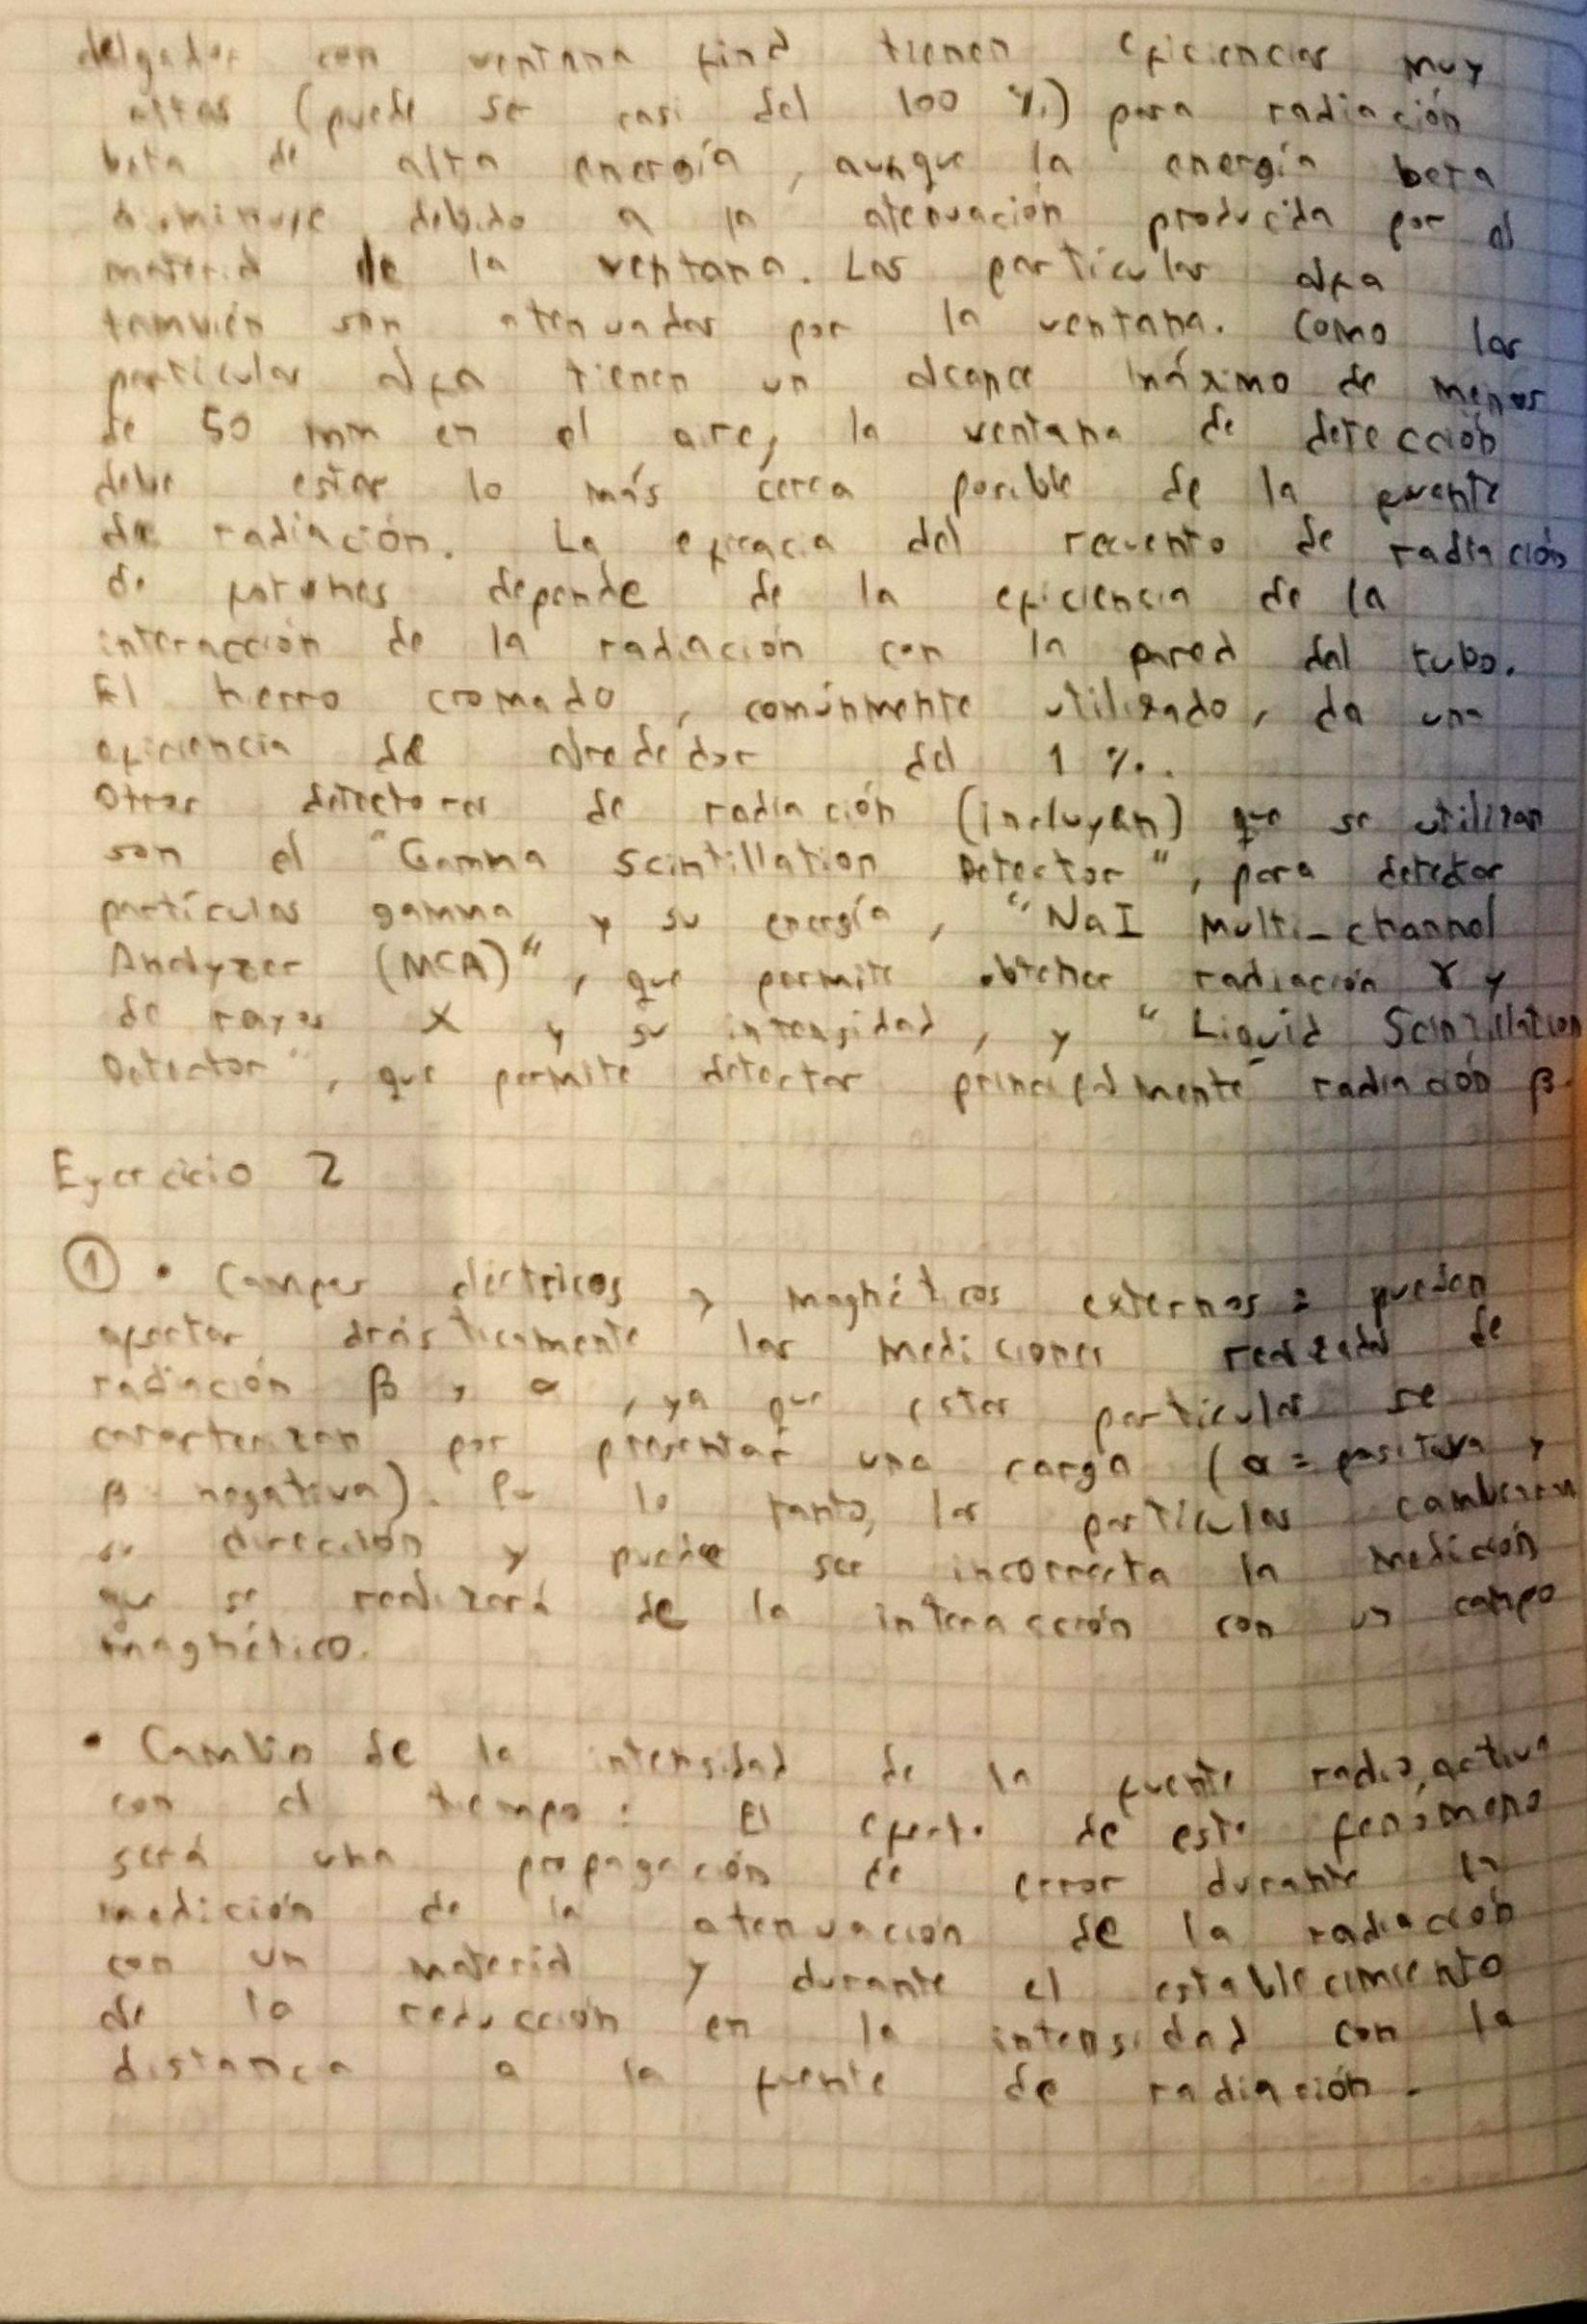 delgados con ventana fina tienen eficiencias muy
altas (puede se casi del 100 %) para radiación
beta de alta energía, aunque la energía beta
disminuye debido a la atenuación producida por el
material de la ventana. Las partículas alfa
también son atenuadas por la ventana. Como las
partículas alfa tienen un alcance máximo de menos
de 50 mm en el aire, la ventana de detección
debe estar lo más cerca posible de la fuente
de radiación. La eficacia del recuento de radiación
de fotones depende de la eficiencia de la
interacción de la radiación con la pared del tubo.
El hierro cromado, comúnmente utilizado, da una
eficiencia de alrededor del 1 %.
Otros detectores de radiación (incluyen) que se utilizan
son el "Gamma Scintillation Detector", para detectar
partículas gamma y su energía, "NaI Multi-channel
Analyzer (MCA)", que permite obtener radiación γ y
de rayos X y su intensidad, y "Liquid Scintillation
Detector", que permite detectar principalmente radiación β.
Ejercicio 2
① • Campos eléctricos y magnéticos externos: pueden
afectar drásticamente las mediciones de
radiación β y α, ya que estas partículas se
caracterizan por presentar una carga (α = positiva y
β negativa). Por lo tanto, las partículas cambiaran
su dirección y puede ser incorrecta la medición
que se realizará de la interacción con un campo
magnético.
• Cambio de la intensidad de la fuente radioactiva
con el tiempo: El efecto de este fenómeno
será una propagación de error durante la
medición de la atenuación de la radiación
con un material y durante el establecimiento
de la reducción en la intensidad con la
distancia a la fuente de radiación.